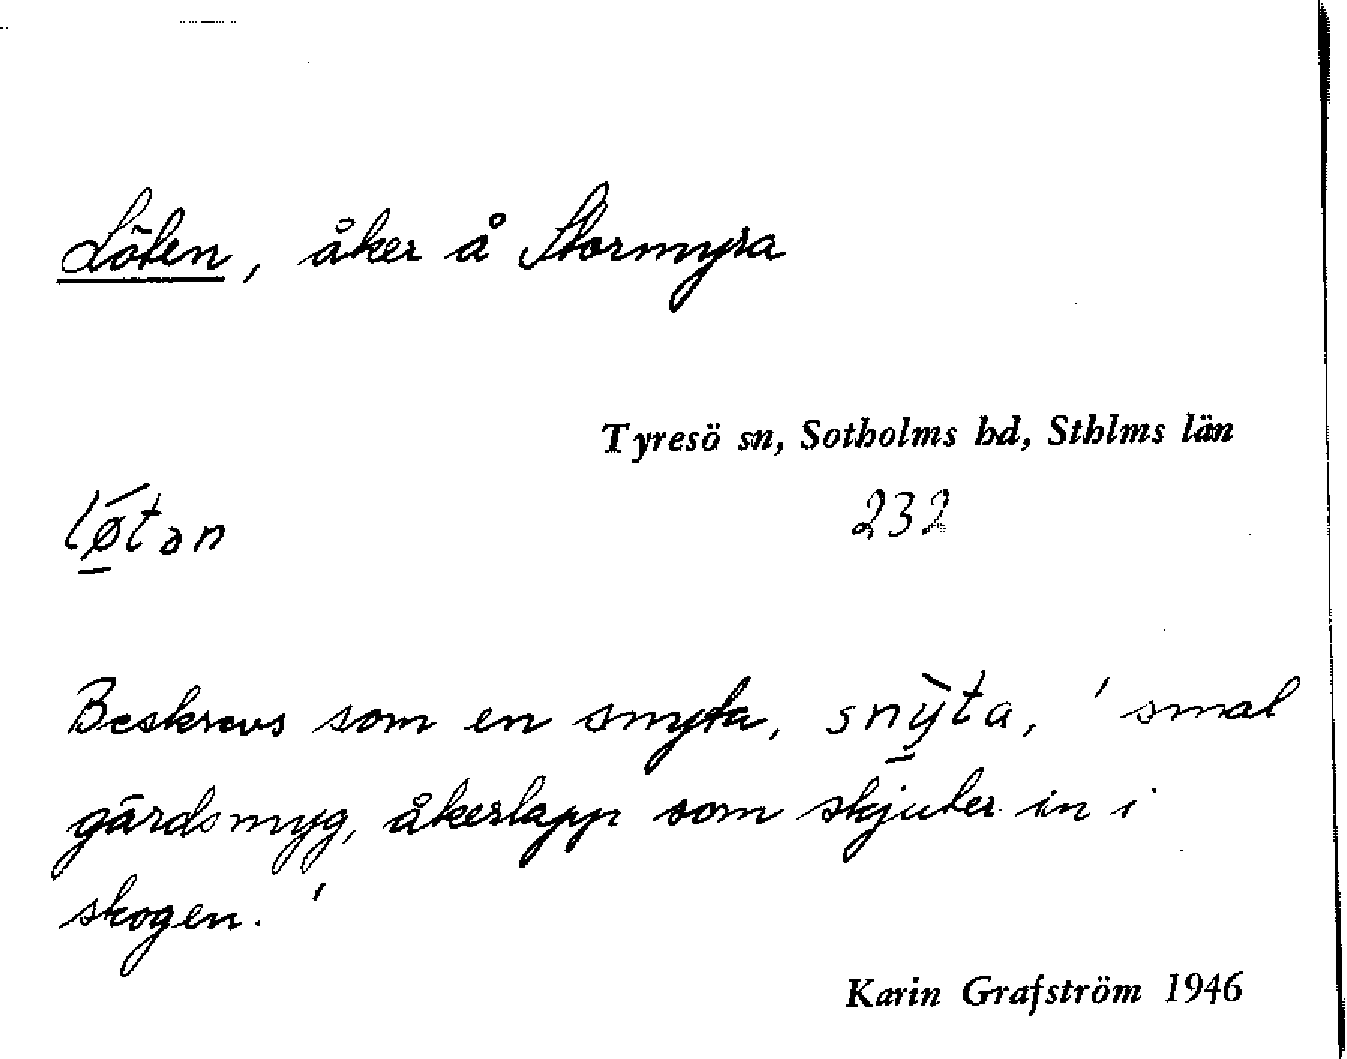 Löten, åker å Stormyra
Tyresö sn, Sotholms hd, Sthlms län
lǿ̱tən
232
Beskrevs som en snyta, snỳ̱ta, ' smal
gärdsmyg, åkerlapp som skjuter in i
skogen. '
Karin Grafström 1946